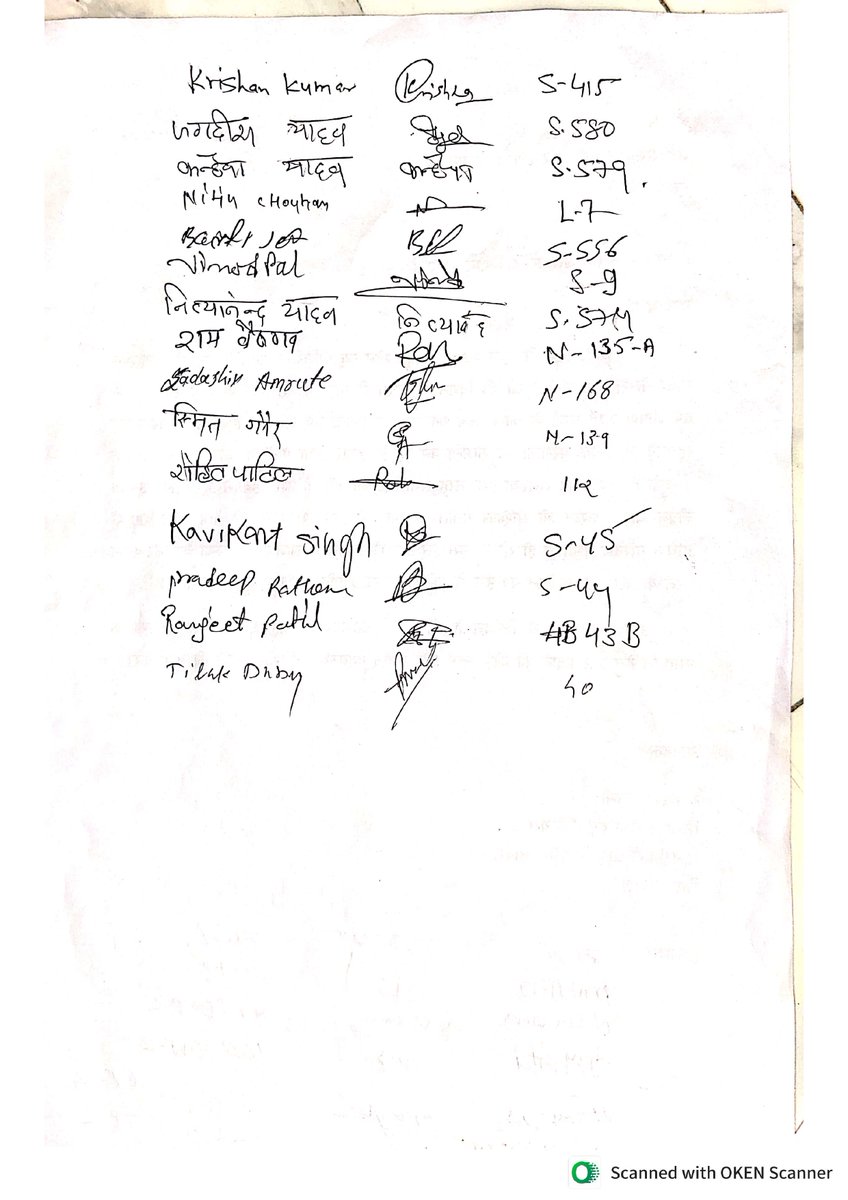 Krishan Kumar Krishna S-415
जगदीश यादव S.580
कन्हैया यादव कन्हैया S.579.
Nitu Chouhan L-7
S-556
Vinod Pal S-9
नित्यानन्द यादव नित्यानंद S.574
राम वैष्णव Ram N-135-A
Sadashiv Amrute N-168
स्मित गौर N-139
रोहित पाटिल 112
Kavikant Singh S-45
Pradeep Rathore S-44
Ranjeet Patil 43 B
Tilak Dubey 40
Scanned with OKEN Scanner